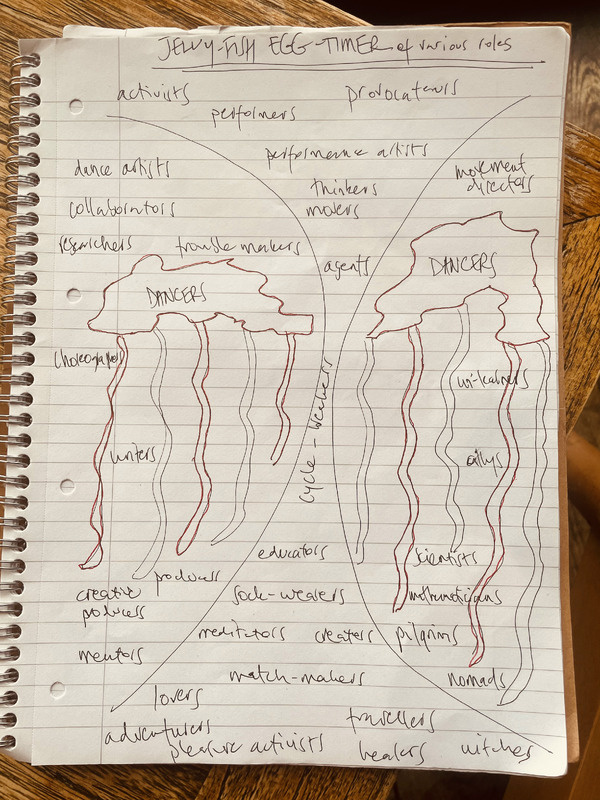 JELLY-FISH EGG-TIMER of various roles
activists
provocateurs
performers
performance artists
dance artists
thinkers
movement
directors
collaborators
makers
researchers
trouble makers
agents
DANCERS
DANCERS
choreographers
cycle-breakers
writers
allys
educators
scientists
producers
creative
producers
sock-wearers
mathematicians
meditators
creators
pilgrims
mentors
match-makers
nomads
lovers
travellers
adventurers
pleasure activists
healers
witches